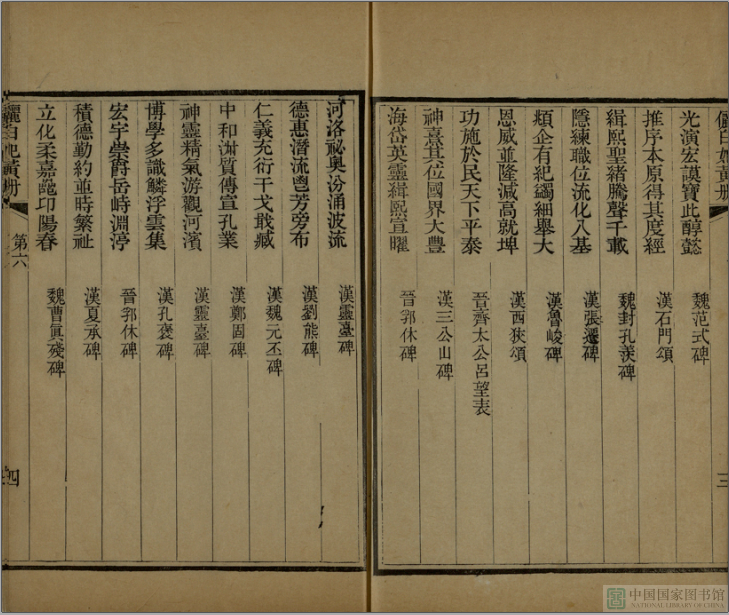 三
光演宏謨寶此醇懿 魏范式碑
推序本原得其度經 漢石門頌
緝熙聖緒騰聲千載 魏封孔羨碑
隱練職位流化八基 漢張遷碑
類企有紀蠲細舉大 漢魯峻碑
恩威並隆減高就埤 漢西狹頌
功施於民天下平泰 晉齊太公呂望表
神熹其位國界大豐 漢三公山碑
海岱英靈緝熙宣曜 晉郛休碑
河洛祕奧汾涌波流 漢靈臺碑
德惠潛流鬯芳旁布 漢劉熊碑
仁義充衍干戈戢藏 漢魏元丕碑
中和淑質傳宣孔業 漢鄭固碑
神靈精氣游觀河濱 漢靈臺碑
博學多識鱗浮雲集 漢孔褒碑
宏宇崇爵岳峙淵渟 晉郛休碑
積德勤約並時繁祉 漢夏承碑
立化柔嘉毓卬陽春 魏曹真殘碑
儷白妃黃册 第六 四
中国国家图书馆
NATIONAL LIBRARY OF CHINA